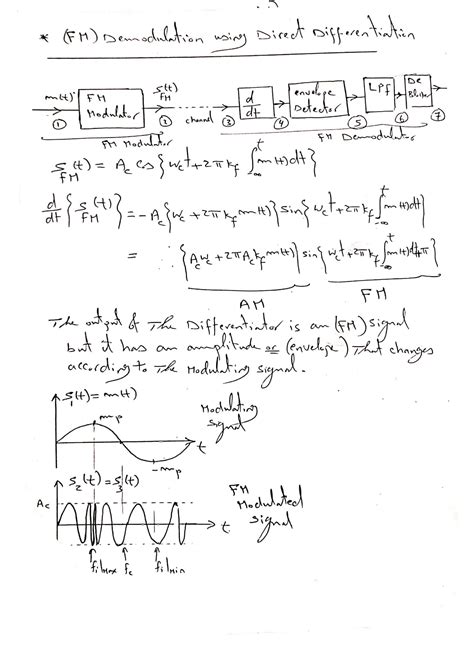 * (FM) Demodulation using Direct Differentiation
m(t) FM Modulator S_FM(t) channel d/dt envelope Detector LPf De Blocker
① ② ③ ④ ⑤ ⑥ ⑦
FM Modulator FM Demodulator
S_FM(t) = A_c Cos{w_c t + 2π k_f ∫_{-∞}^{t} m(t) dt}
d/dt {S_FM(t)} = -A_c {w_c + 2π k_f m(t)} sin{w_c t + 2π k_f ∫_{-∞}^{t} m(t) dt}
= {A_c w_c + 2π A_c k_f m(t)} sin{w_c t + 2π k_f ∫_{-∞}^{t} m(t) dt + π}
AM FM
The output of The Differentiator is an (FM) signal
but it has an amplitude or (envelope) That changes
according to The Modulating signal.
S_1(t) = m(t)
Modulating signal
m_p
t
-m_p
S_2(t) = S_3(t)
FM Modulated signal
A_c
t
f_i|max f_c f_i|min